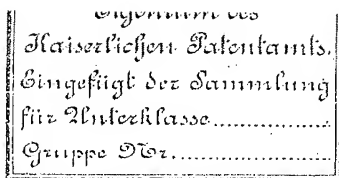 Eigentum des
Kaiserlichen Patentamts.
Eingefügt der Sammlung
für Unterklasse..............
Gruppe Nr...................